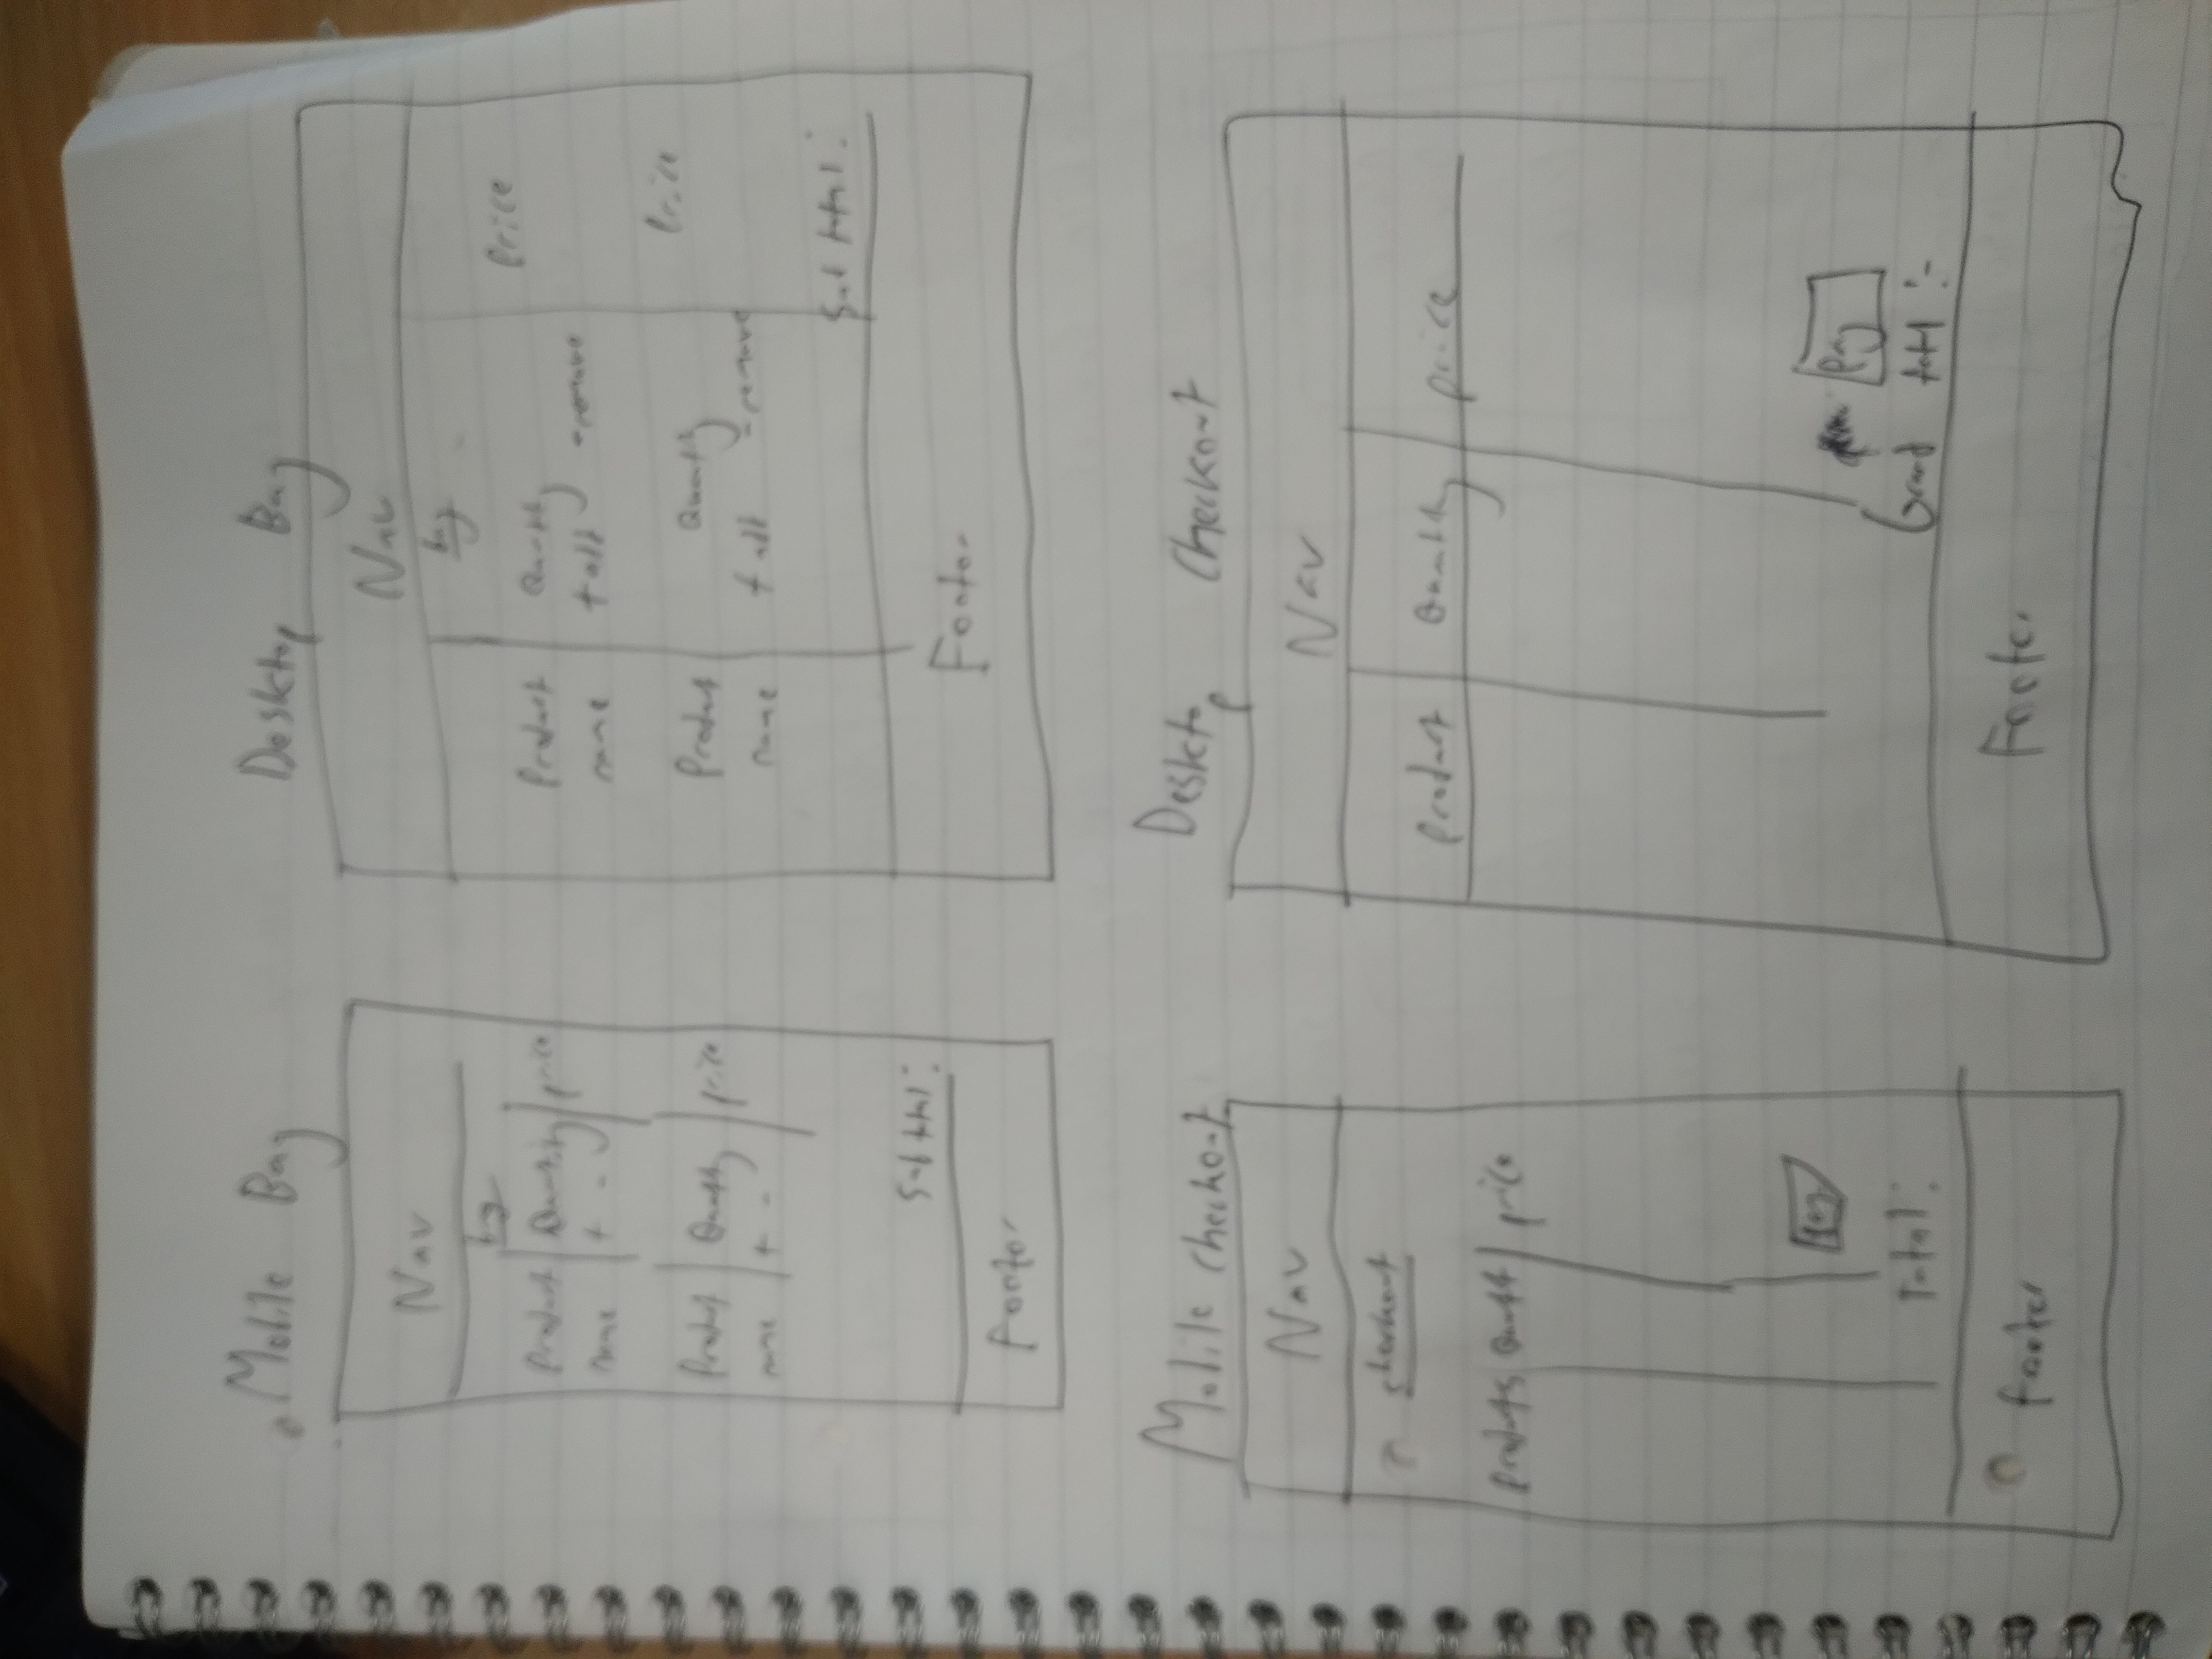 Mobile Bag
Nav
bag
Product Quantity price
name + -
Product Quantity price
name + -
Sub total:
Footer
Desktop Bag
Nav
bag
Price
Product Quantity
name + add - remove
Price
Product Quantity
name + add - remove
Sub total:
Footer
Mobile Checkout
Nav
checkout
Products price
Pay
total:
footer
Desktop Checkout
Nav
Product Quantity price
Pay
Grand total :-
Footer